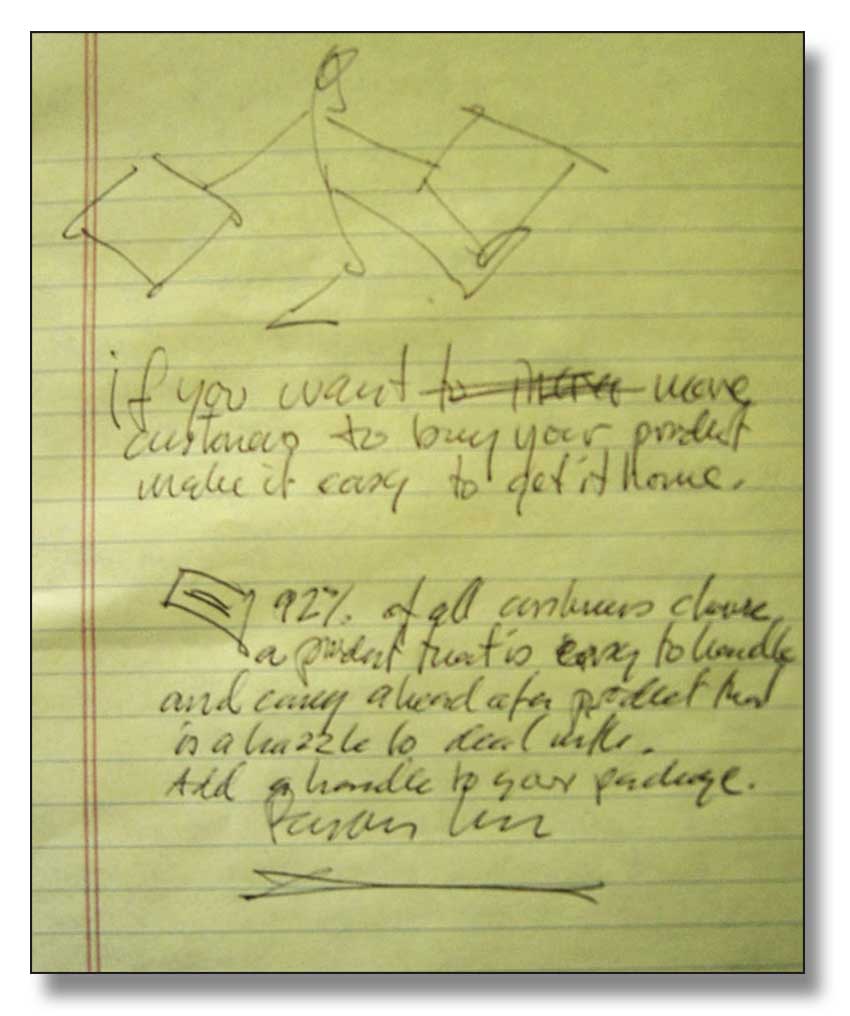 if you want to more
customers to buy your product
make it easy to get it home.
92% of all customers choose
a product that is easy to handle
and carry ahead of a product that
is a hazzle to deal with.
Add a handle to your package.